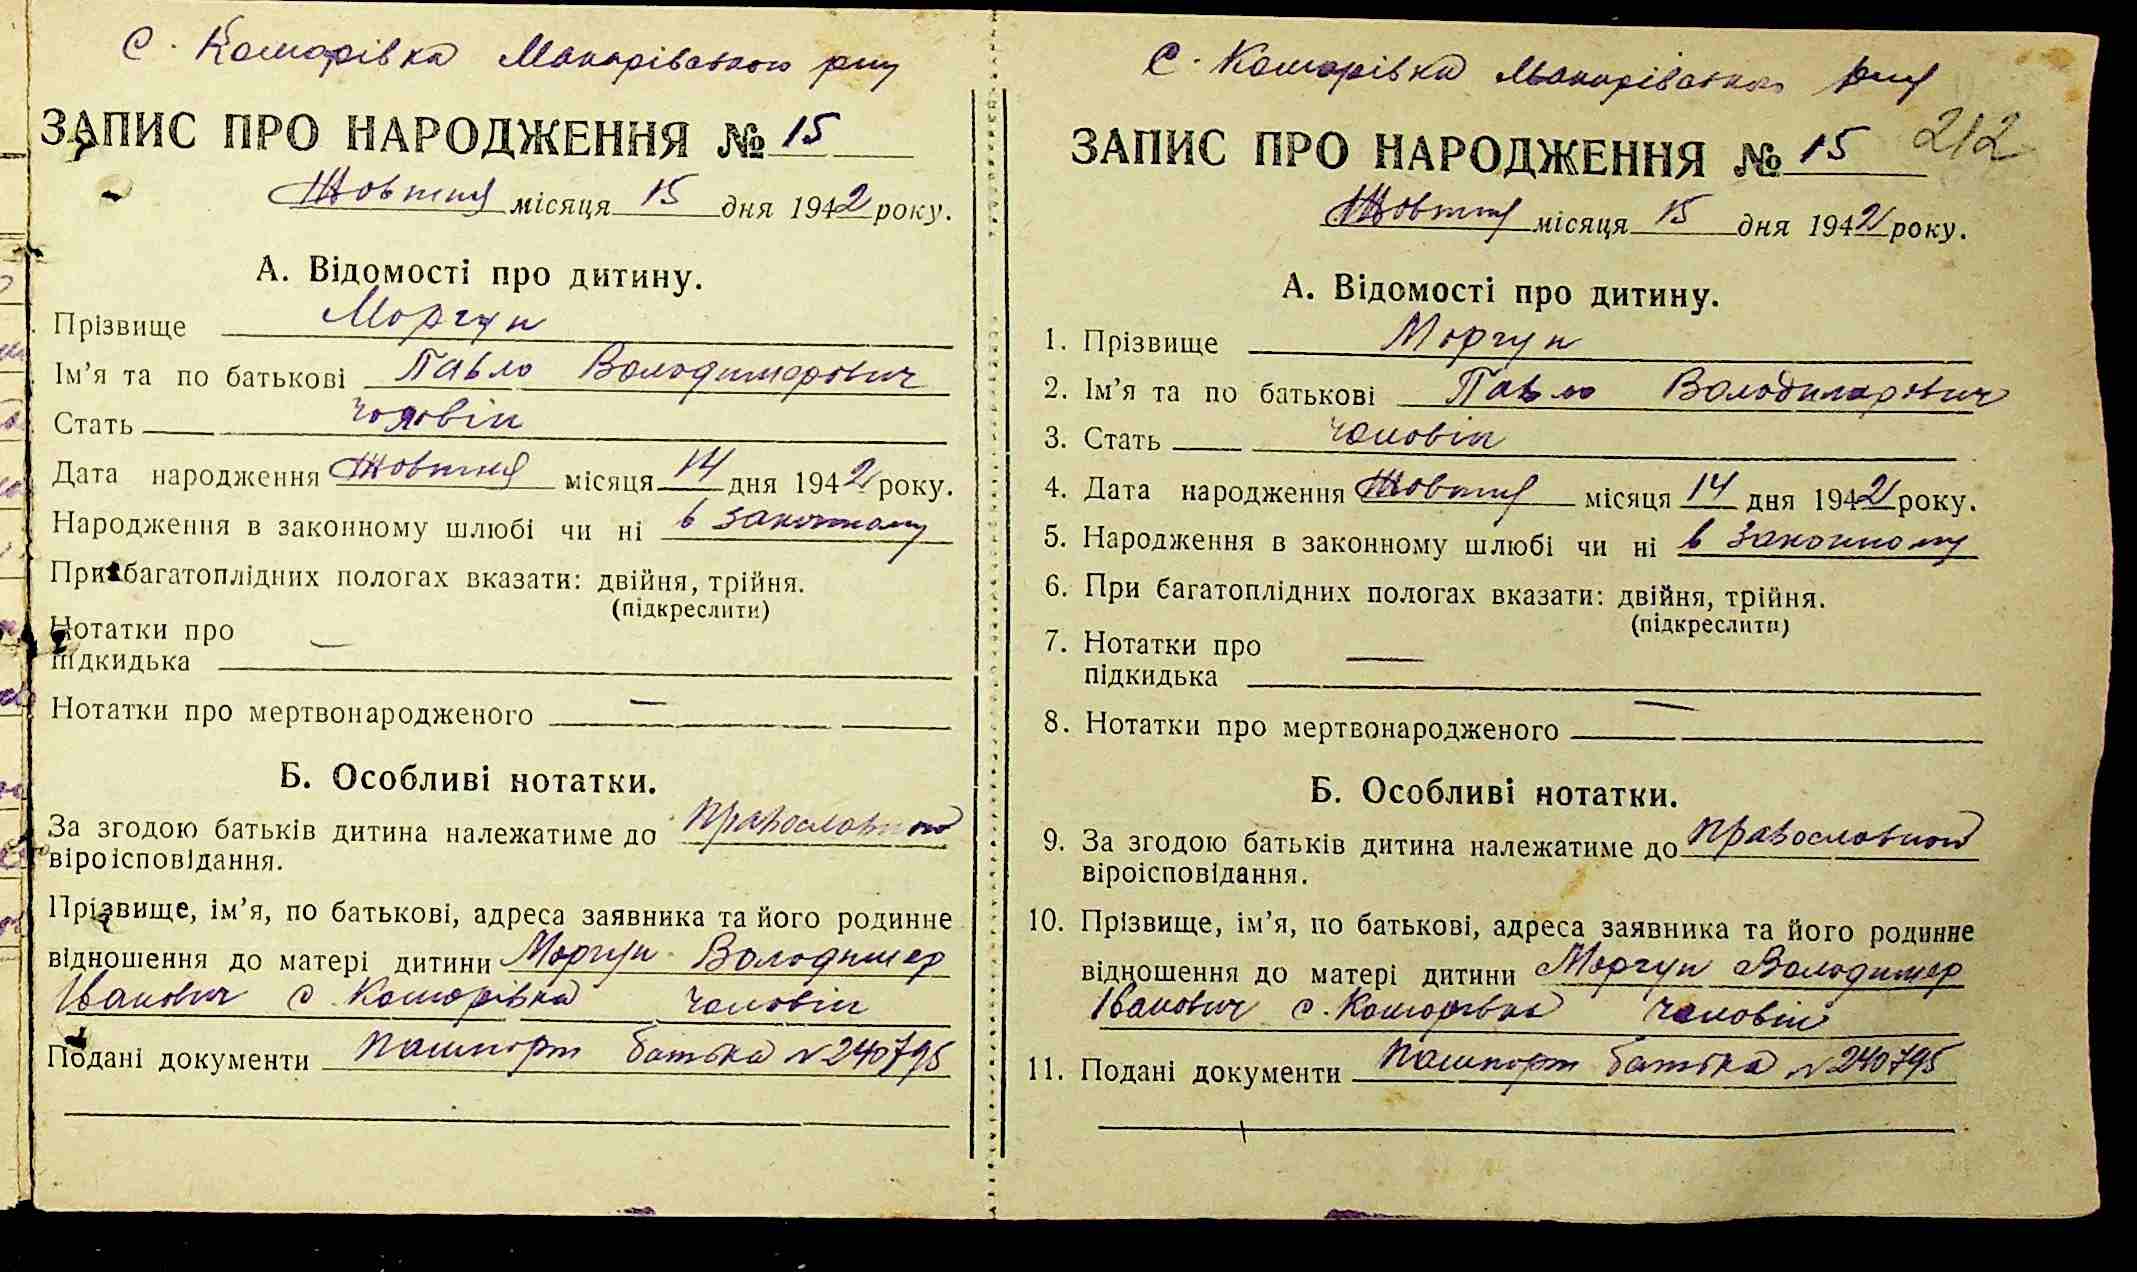 с. Комарівка Макарівського р-ну
ЗАПИС ПРО НАРОДЖЕННЯ № 15
Жовтня місяця 15 дня 1942 року.
А. Відомості про дитину.
Прізвище Моргун
Ім’я та по батькові Павло Володимирович
Стать чоловік
Дата народження Жовтня місяця 14 дня 1942 року.
Народження в законному шлюбі чи ні в законному
При багатоплідних пологах вказати: двійня, трійня.
(підкреслити)
Нотатки про —
підкидька
Нотатки про мертвонародженого —
Б. Особливі нотатки.
За згодою батьків дитина належатиме до православного
віроісповідання.
Прізвище, ім’я, по батькові, адреса заявника та його родинне
відношення до матері дитини Моргун Володимер
Іванович с. Комарівка чоловік
Подані документи пашпорт батька № 240795
с. Комарівка Макарівського р-ну
212
ЗАПИС ПРО НАРОДЖЕННЯ № 15
Жовтня місяця 15 дня 1942 року.
А. Відомості про дитину.
1. Прізвище Моргун
2. Ім’я та по батькові Павло Володимирович
3. Стать чоловік
4. Дата народження Жовтня місяця 14 дня 1942 року.
5. Народження в законному шлюбі чи ні в законному
6. При багатоплідних пологах вказати: двійня, трійня.
(підкреслити)
7. Нотатки про —
підкидька
8. Нотатки про мертвонародженого —
Б. Особливі нотатки.
9. За згодою батьків дитина належатиме до православного
віроісповідання.
10. Прізвище, ім’я, по батькові, адреса заявника та його родинне
відношення до матері дитини Моргун Володимер
Іванович с. Комарівка чоловік
11. Подані документи пашпорт батька № 240795